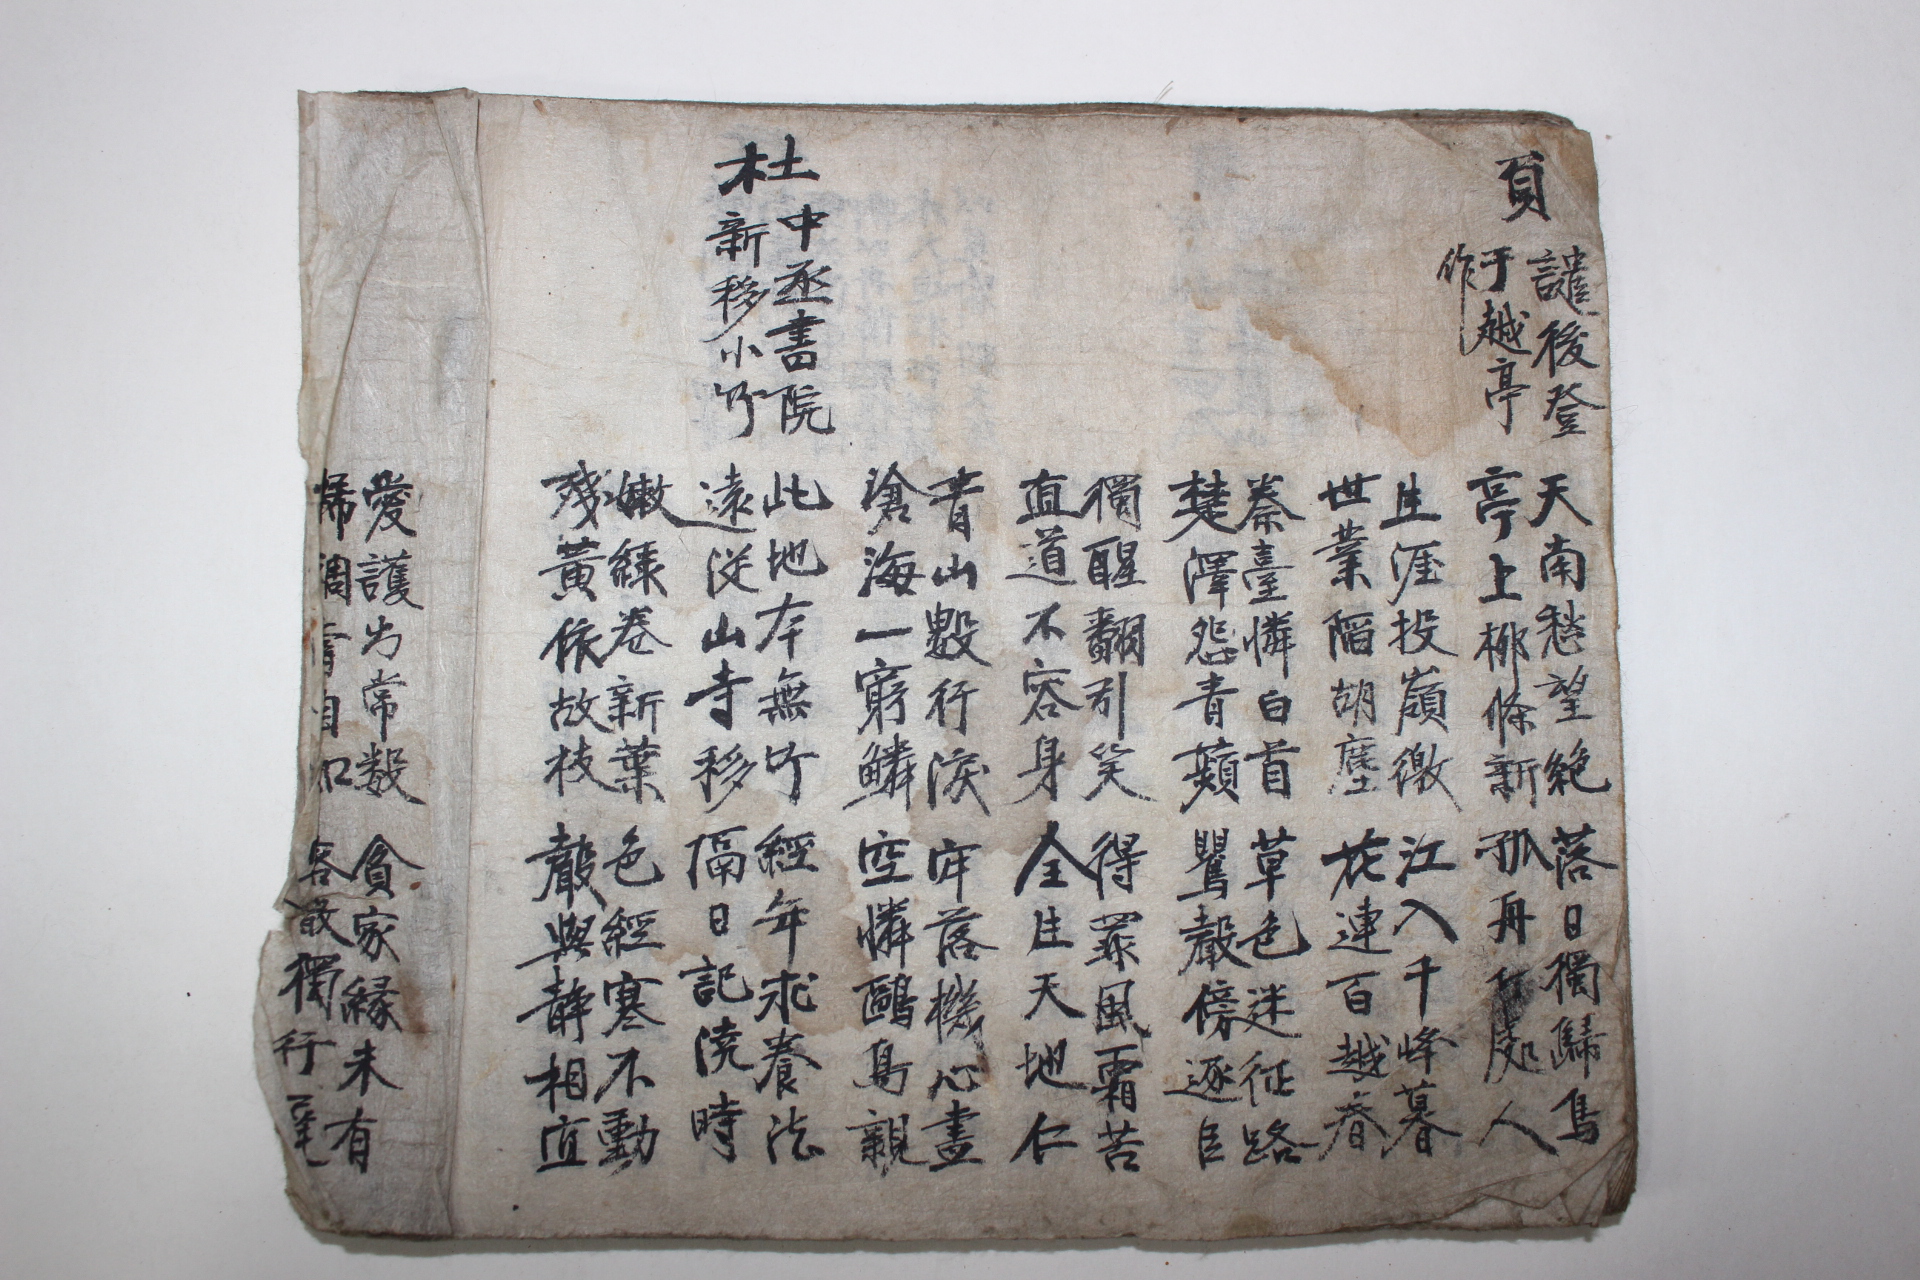 頁
譴後登
于越亭
作
天南愁望絶 落日獨歸鳥
亭上柳條新 孤舟何處人
生涯投嶺徼 江入千峰暮
世業陷胡塵 花連百越春
秦臺憐白首 草色迷征路
楚澤怨青蘋 鸎聲傍逐臣
獨醒翻引笑 得罪風霜苦
直道不容身 全生天地仁
青山數行淚 牢落機心盡
滄海一窮鱗 空憐鷗鳥親
杜
中丞書院
新移小竹
此地本無竹 經年求養法
遠從山寺移 隔日記澆時
嫩綠卷新葉 色經寒不動
殘黃依故枝 聲與靜相宜
愛護出常數 貪家緣未有
稀稠看自知 客散獨行